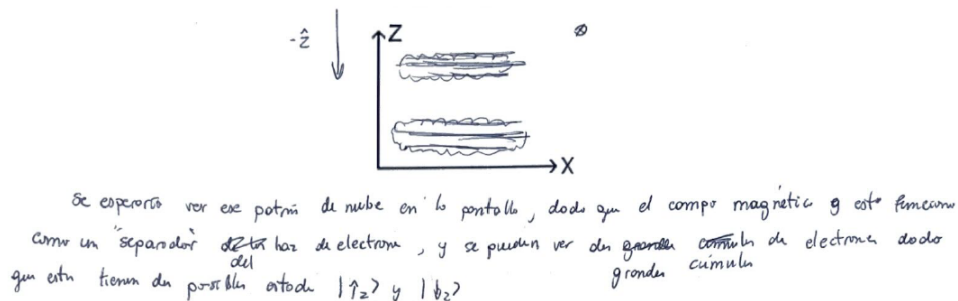 -ẑ
Z
X
Se esperaría ver ese patrón de nube en la pantalla, dado que el campo magnético y esto funciona
como un "separador" del haz de electrone, y se pueden ver dos grandes cúmulos de electrones dado
que estn tienen dos posibles estado |↑z> y |↓z>